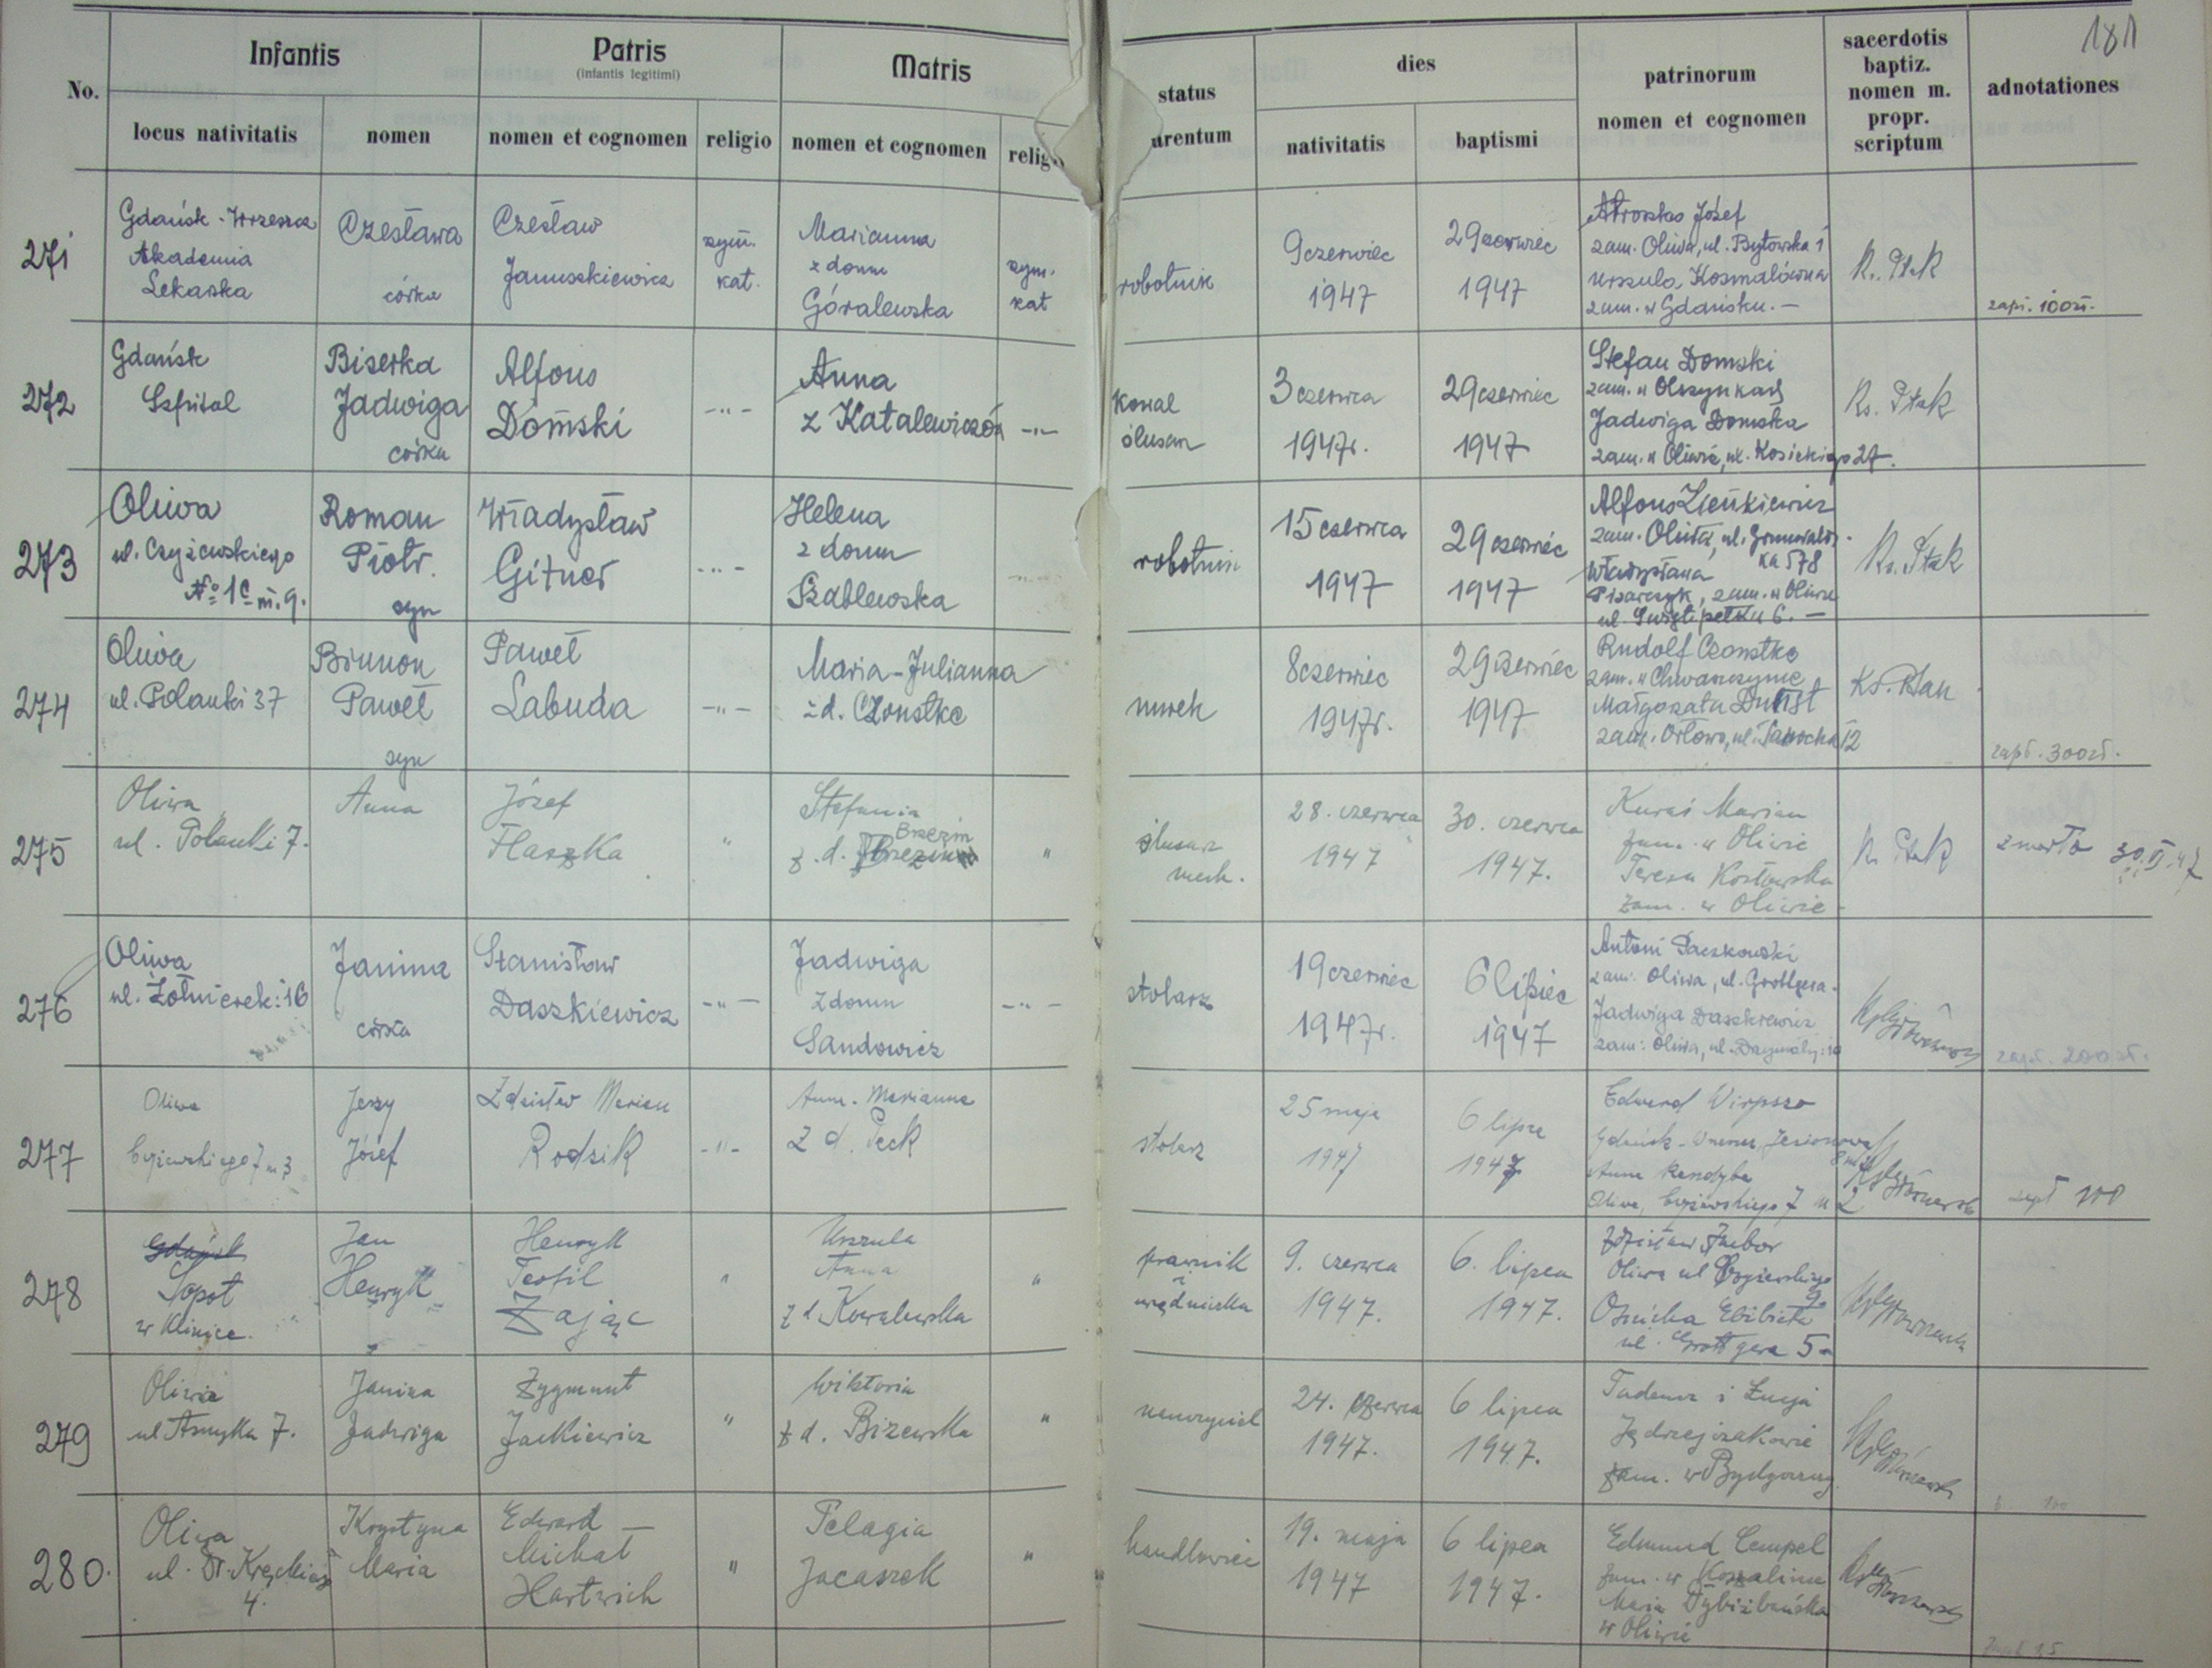 181
No.
Infantis
locus nativitatis
nomen
Patris
(infantis legitimi)
nomen et cognomen
religio
Matris
nomen et cognomen
relig
status
arentum
dies
nativitatis
baptismi
patrinorum
nomen et cognomen
sacerdotis
baptiz.
nomen m.
propr.
scriptum
adnotationes
271
Gdańsk - Wrzeszcz
Akademia
Lekarska
Czesława
córka
Czesław
Januszkiewicz
rzym.
kat.
Marianna
z domu
Góralewska
rzym.
kat
robotnik
9 czerwiec
1947
29 czerwiec
1947
Józef
zam. Oliwa, ul. Bytowska 1
Urszula Kosmalówna
zam. w Gdańsku. —
Ks. Ptak
zapł. 100 zł.
272
Gdańsk
Szpital
Biserka
Jadwiga
córka
Alfons
Domski
-"-
Anna
z Katalewiczów
-"-
Kowal
ślusarz
3 czerwca
1947r.
29 czerwiec
1947
Stefan Domski
zam. w Olszynkach
Jadwiga Domska
zam. w Oliwie, ul. Kosickiego 27.
Ks. Ptak
273
Oliwa
ul. Czyżewskiego
No 1c m. 9.
Roman
Piotr.
syn
Władysław
Gitner
-"-
Helena
z domu
Szablewska
-"-
robotnik
15 czerwca
1947
29 czerwiec
1947
Alfons Zienkiewicz
zam. Oliwa, ul. Grunwaldz-
ka 578
Władysława
Pisarczyk, zam. w Oliwie
ul. Świętopełka 6. —
Ks. Ptak
274
Oliwa
ul. Polanki 37
Brunon
Paweł
syn
Paweł
Labuda
-"-
Maria-Julianna
z d. Czonstke
murek
8 czerwiec
1947r.
29 czerwiec
1947
Rudolf Czonstke
zam. w Chwaszczynie
Małgorzata
zam. Orłowo, ul. 12
Ks. Ptak
zapł. 300 zł.
275
Oliwa
ul. Polanki 7.
Anna
Józef
Flaszka
"
Stefania
Brzezin
z. d.
"
ślusarz
mech.
28. czerwca
1947
30. czerwca
1947.
Kuraś Marian
zam. w Oliwie
Teresa Kozłowska
zam. w Oliwie -
Ks Ptak
zmarła 30.VI.47
276
Oliwa
ul. Żołnierek: 16
Janina
córka
Stanisław
Daszkiewicz
-"-
Jadwiga
z domu
Sandowicz
-"-
stolarz
19 czerwiec
1947r.
6 lipiec
1947
Antoni Paczkowski
zam. Oliwa, ul. Grottgera.
Jadwiga Daszkiewicz
zam: Oliwa, ul. Drzymały: 10
zapł. 200 zł.
277
Oliwa
Czyżewskiego 7 m 3
Jerzy
Józef
Zdzisław Marian
Rodzik
-"-
Anna - Marianna
z d. Peck
stolarz
25 maja
1947
6 lipca
1947
Edward Wirpszo
Gdańsk - Wrzeszcz, Jesionowa
8 m
Anna Kendyba
Oliwa, Czyżewskiego 7 m 2
zapł 100
278
Gdańsk
Sopot
w Klinice.
Jan
Henryk
Henryk
Teofil
Zając
"
Urszula
Anna
z d Kowalewska
"
prawnik
i
urzędniczka
9. czerwca
1947.
6. lipca
1947.
Zdzisław
Oliwa ul Czyżewskiego
9.
Elżbieta
ul. Grottgera 5a
279
Oliwa
ul Asnyka 7.
Janina
Jadwiga
Zygmunt
Jackiewicz
"
Wiktoria
z d. Bizewska
"
nauczyciel
24. czerwca
1947.
6 lipca
1947.
Tadeusz i Łucja
Jędrzejczakowie
zam. w Bydgoszczy
280.
Oliwa
ul. Kręckiego
4.
Krystyna
Maria
Edward —
Michał
Hartwich
"
Pelagia
Jacaszek
"
handlowiec
19. maja
1947
6 lipca
1947.
Edmund Cempel
zam. w Koszalinie
Maria
w Oliwie